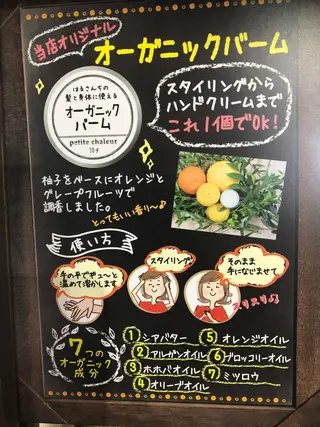 当店オリジナル
オーガニックバーム
はるさんちの
髪と身体に使える
オーガニック
バーム
petite chaleur
柚子
スタイリングから
ハンドクリームまで
これ1個でOK!
柚子をベースにオレンジと
グレープフルーツで
調香しました。
とってもいい香り〜♪
使い方
手の平でギューと
温めて溶かします
スタイリング
そのまま
手になじませて
スリスリ♪
7つの
オーガニック
成分
① シアバター
② アルガンオイル
③ ホホバオイル
④ オリーブオイル
⑤ オレンジオイル
⑥ ブロッコリーオイル
⑦ ミツロウ